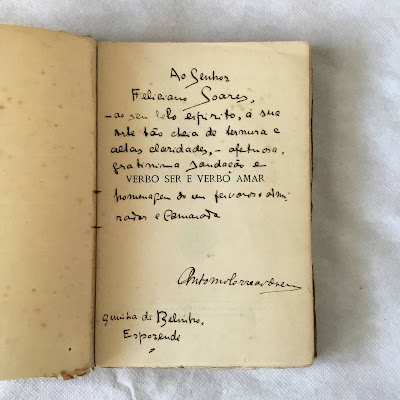 Ao Senhor
Feliciano Soares,
- ao seu belo espirito, á sua
Arte tão cheia de ternura e
altas claridades, - afetuosa,
gratissima saudação e
VERBO SER E VERBO AMAR
homenagem do seu fervoroso admi-
rador e Camarada
Antonio Correa d'Oliveira
Quinta de Belinho,
Esposende